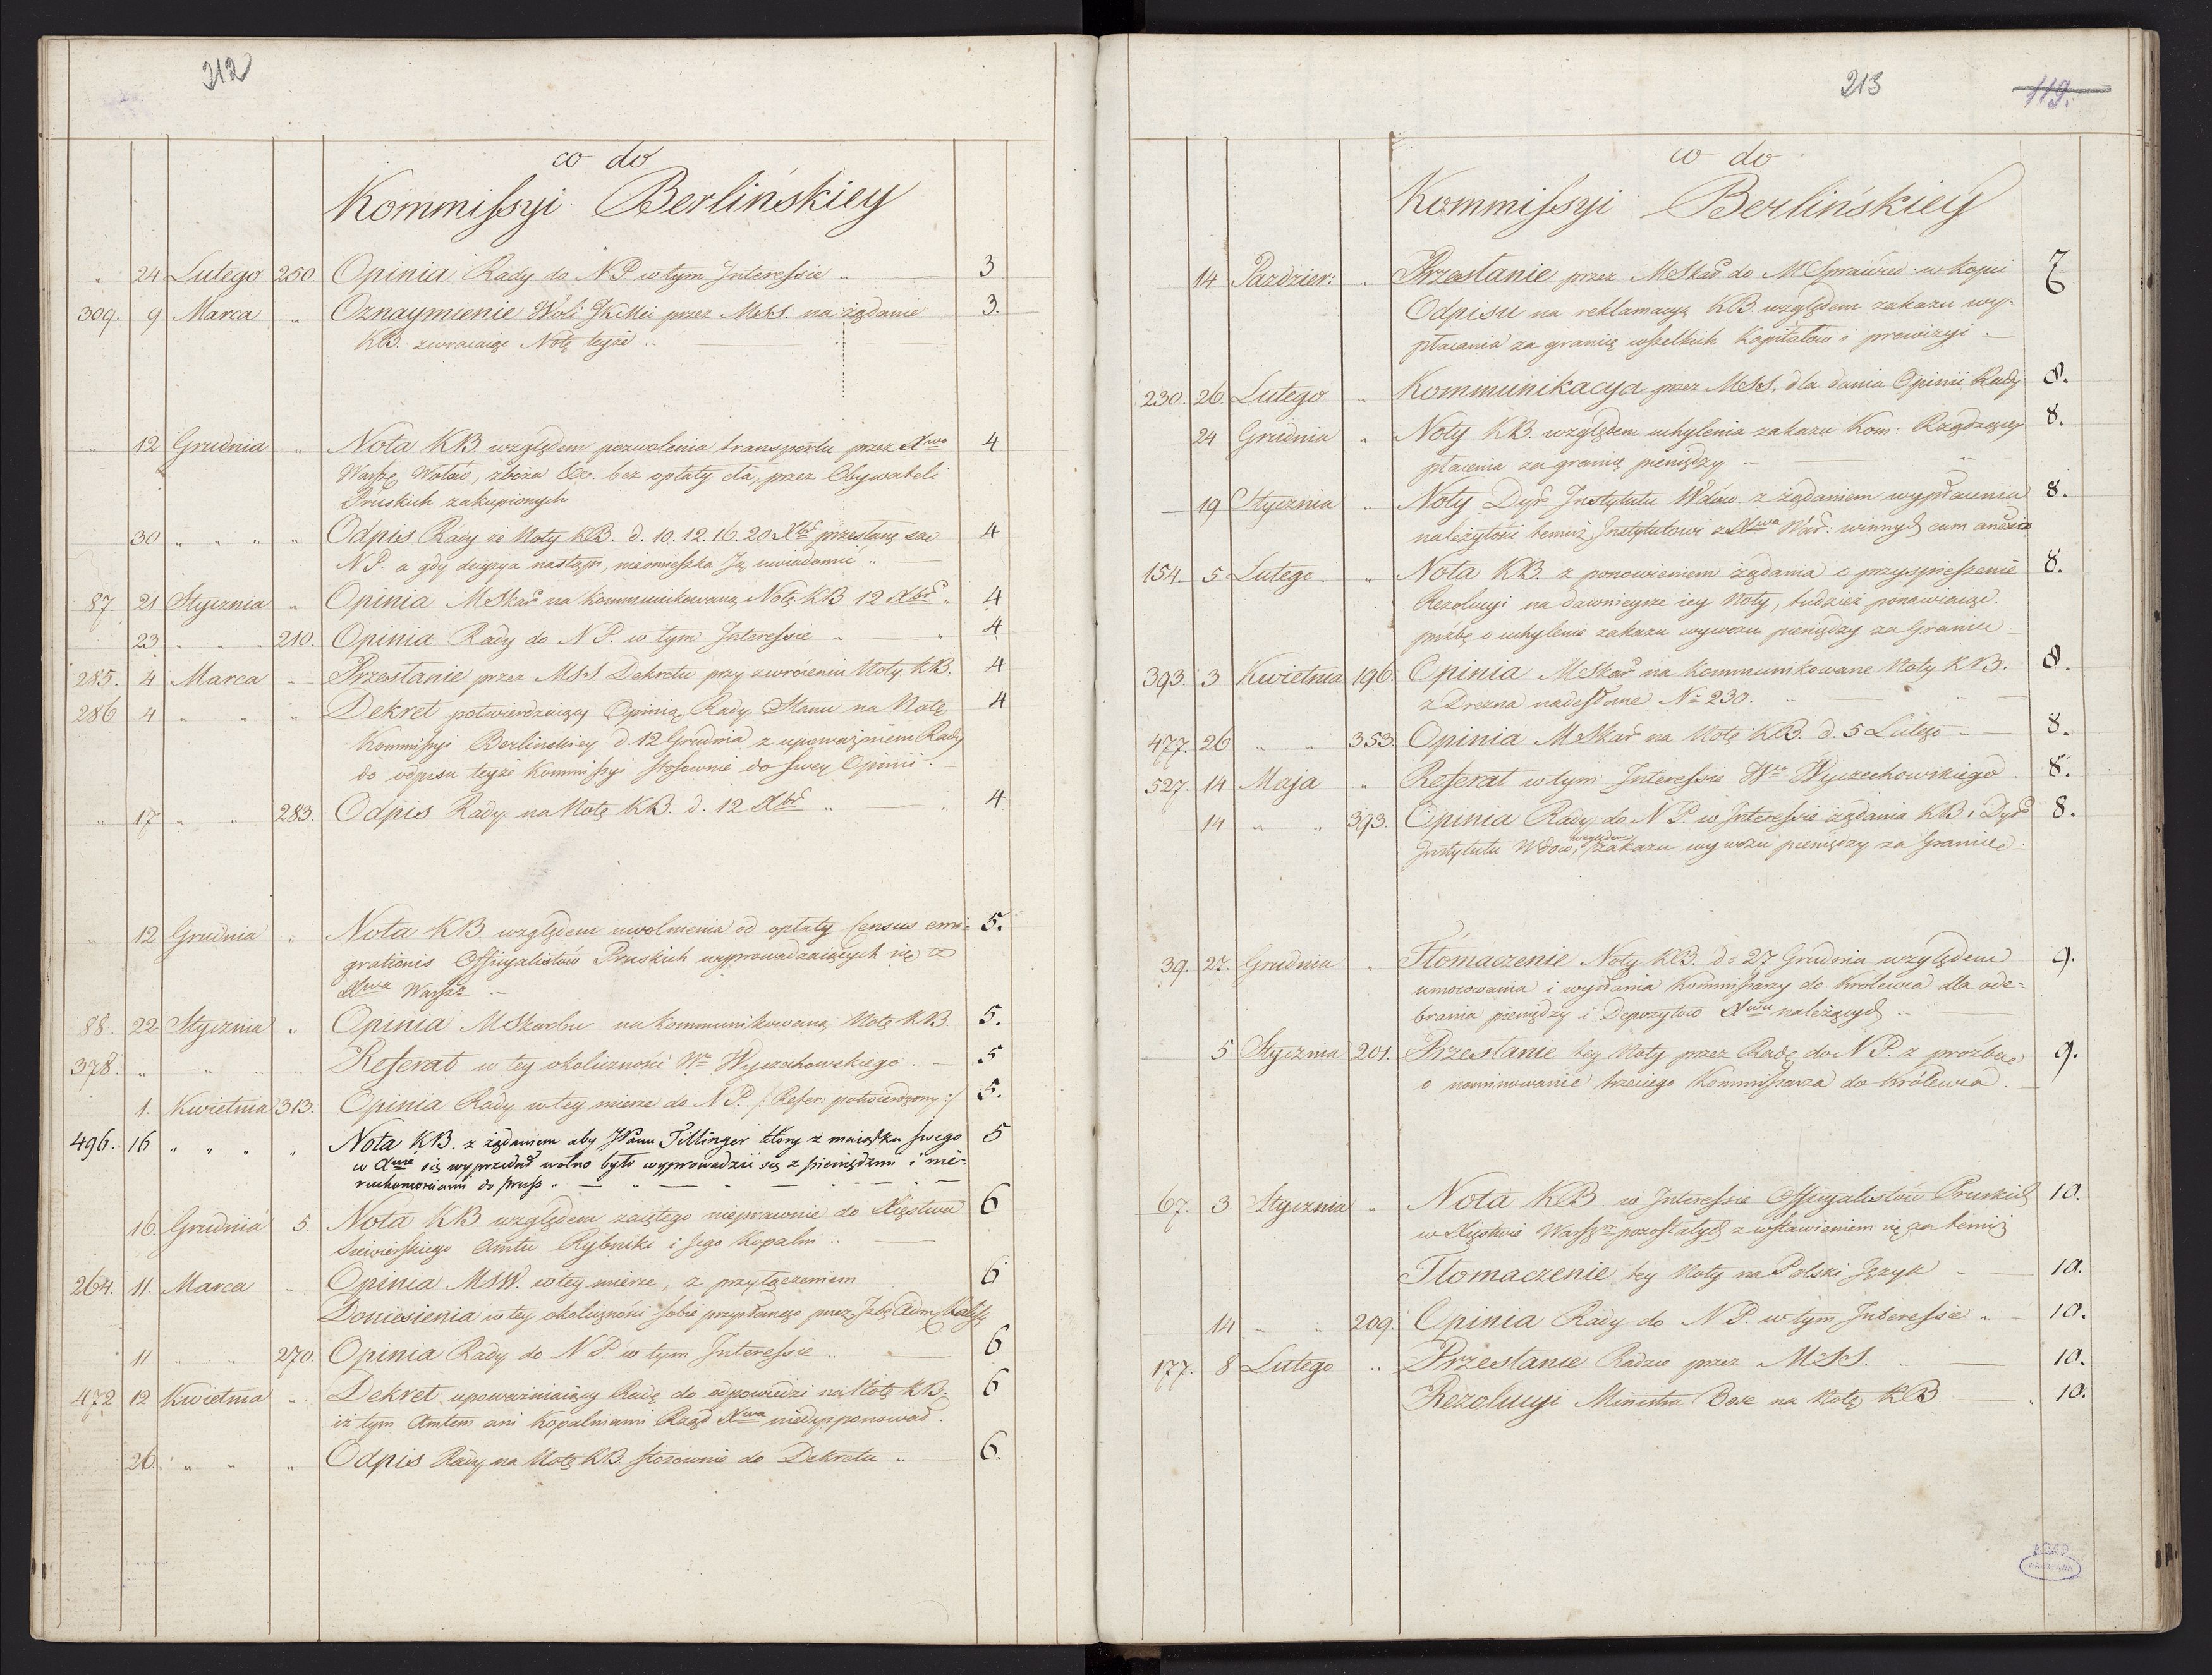 212
co do
Kommissyi Berlińskiey
" 24 Lutego 250. Opinia Rady do N.P. w tym Interessie " 3
309. 9 Marca " Oznaymienie Woli JKMci przez MSS. na żądanie 3.
KB. zwracaiąc Notę teyże "
" 12 Grudnia " Nota KB. względem pozwolenia transportu przez Xwo 4
Warsz: Wołów, zboża &c. bez opłaty cła, przez Obywateli
Pruskich zakupionych
30 " " " " Odpis Rady że Noty KB. d. 10. 12. 16. 20 Xbr przesłane są 4
N.P. a gdy decyzya nastąpi, nieomieszka Ją uwiadomić "
87. 21 Stycznia " Opinia MSkar na kommunikowaną Notę KB 12 Xbr " 4
23 " " " 210. Opinia Rady do N.P. w tym Interessie " " 4
285. 4 Marca " Przesłanie przez MSS Dekretu przy zwróceniu Noty KB. 4
286 4 " " " Dekret potwierdzaiący Opinią Rady Stanu na Notę 4
Kommissyi Berlinskiey d. 12 Grudnia z upoważnieniem Rady
do odpisu teyże Kommissyi stosownie do swey Opinii.
" 17 " " 283. Odpis Rady na Notę KB. d. 12 Xbr " " 4.
" 12 Grudnia " Nota KB względem uwolnienia od opłaty Census emi- 5.
grationis Officyalistów Pruskich wyprowadzaiących się z
Xwa Warsz
88. 22 Stycznia " Opinia MSkarbu na kommunikowaną Notę KB. 5.
378. " " " " Referat w tey okoliczności Wo Wyczechowskiego " 5
1. Kwietnia 313. Opinia Rady w tey mierze do N.P. /: Refer: potwierdzony :/ 5.
496. 16 " " " " Nota KB. z żądaniem aby JPanu Tillinger który z maiątku swego 5
w Xwie się wyprzedał wolno było wyprowadzić się z pieniędzmi i nie-
ruchomościami do Pruss "
16. Grudnia 5. Nota KB względem zaiętego nieprawnie do Xięstwa 6
Siewierskiego Amtu Rybniki i Jego Kopalni "
264. 11. Marca " Opinia MSW. w tey mierze, z przyłączeniem 6
Doniesienia w tey okoliczności sobie przysłanego przez Izbę Adm: Kaliską
11 " " 270. Opinia Rady do N.P. w tym Interessie " 6
472 12 Kwietnia " Dekret upoważniaiący Radę do odpowiedzi na Notę KB. 6
iż tym Amtem ani Kopalniami Rząd Xwa niedysponował.
26. " " " Odpis Rady na Notę KB. stosownie do Dekretu " 6.
213
119.
co do
Kommissyi Berlińskiey
14 Pazdzier: " Przesłanie przez MSkar do MSprawied: w kopii 7
Odpisu na reklamacyą KB. względem zakazu wy-
płacania za granicę wszelkich Kapitałów i prowizyi 6
230. 26. Lutego " Kommunikacya przez MSS. dla dania Opinii Rady 8.
24 Grudnia " Noty KB. względem uchylenia zakazu Kom: Rządzącey 8.
płacenia za granicę pieniędzy "
19 Stycznia " Noty Dyr Instytutu Wdów. z żądaniem wypłacenia 8.
należytości temuż Instytutowi z Xwa War: winnych cum anexis
154. 5 Lutego. " Nota KB. z ponowieniem żądania o przyspieszenie 8.
Rezolucyi na dawnieysze iey Noty, tudzież ponawiaiąc
prożbę o uchylenie zakazu wywozu pieniędzy za Granicę
393. 3 Kwietnia 196. Opinia MSkar na kommunikowane Noty KB. 8.
z Drezna nadesłane No 230.
477. 26 " " 353. Opinia MSkar na Notę KB. d. 5 Lutego 8.
527. 14 Maja " Referat w tym Interessie Wo Wyczechowskiego. 8.
14 " " 393. Opinia Rady do N.P. w Interessie żądania KB i Dyr 8.
Instytutu Wdow: względem zakazu wywozu pieniędzy za Granicę.
39. 27. Grudnia " Tłomaczenie Noty KB. d. 27 Grudnia względem 9.
umocowania i wysłania Kommissarzy do Krolewca dla ode-
brania pieniędzy i Depozytów Xwu należących "
5 Stycznia 201. Przesłanie tey Noty przez Radę do N.P. z prożbą 9.
o nominowanie trzeciego Kommissarza do Królewca.
67. 3 Stycznia " Nota KB. w Interessie Officyalistów Pruskich 10.
w Xięstwie Warsz pozostałych z wstawieniem się za temiż
Tłomaczenie tey Noty na Polski Język 10.
14 " " 209. Opinia Rady do N.P. w tym Interessie " 10.
177. 8 Lutego " Przesłanie Radzie przez MSS. 10.
Rezolucyi Ministra Bose na Notę KB. 10.